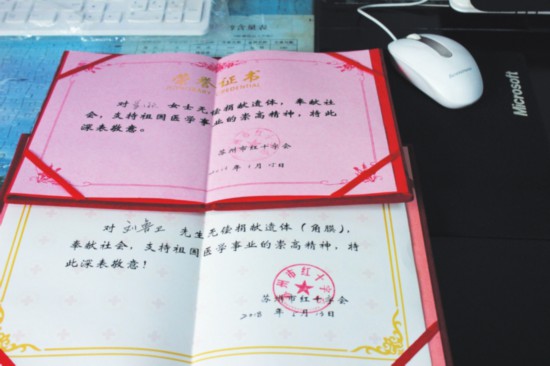 荣誉证书
对 女士无偿捐献遗体，奉献社
会，支持祖国医学事业的崇高精神，特此
深表敬意。
苏州市红十字会
对 先生无偿捐献遗体（角膜），
奉献社会，支持祖国医学事业的崇高精神，特
此深表敬意！
苏州市红十字会
苏州市红十字会
Microsoft